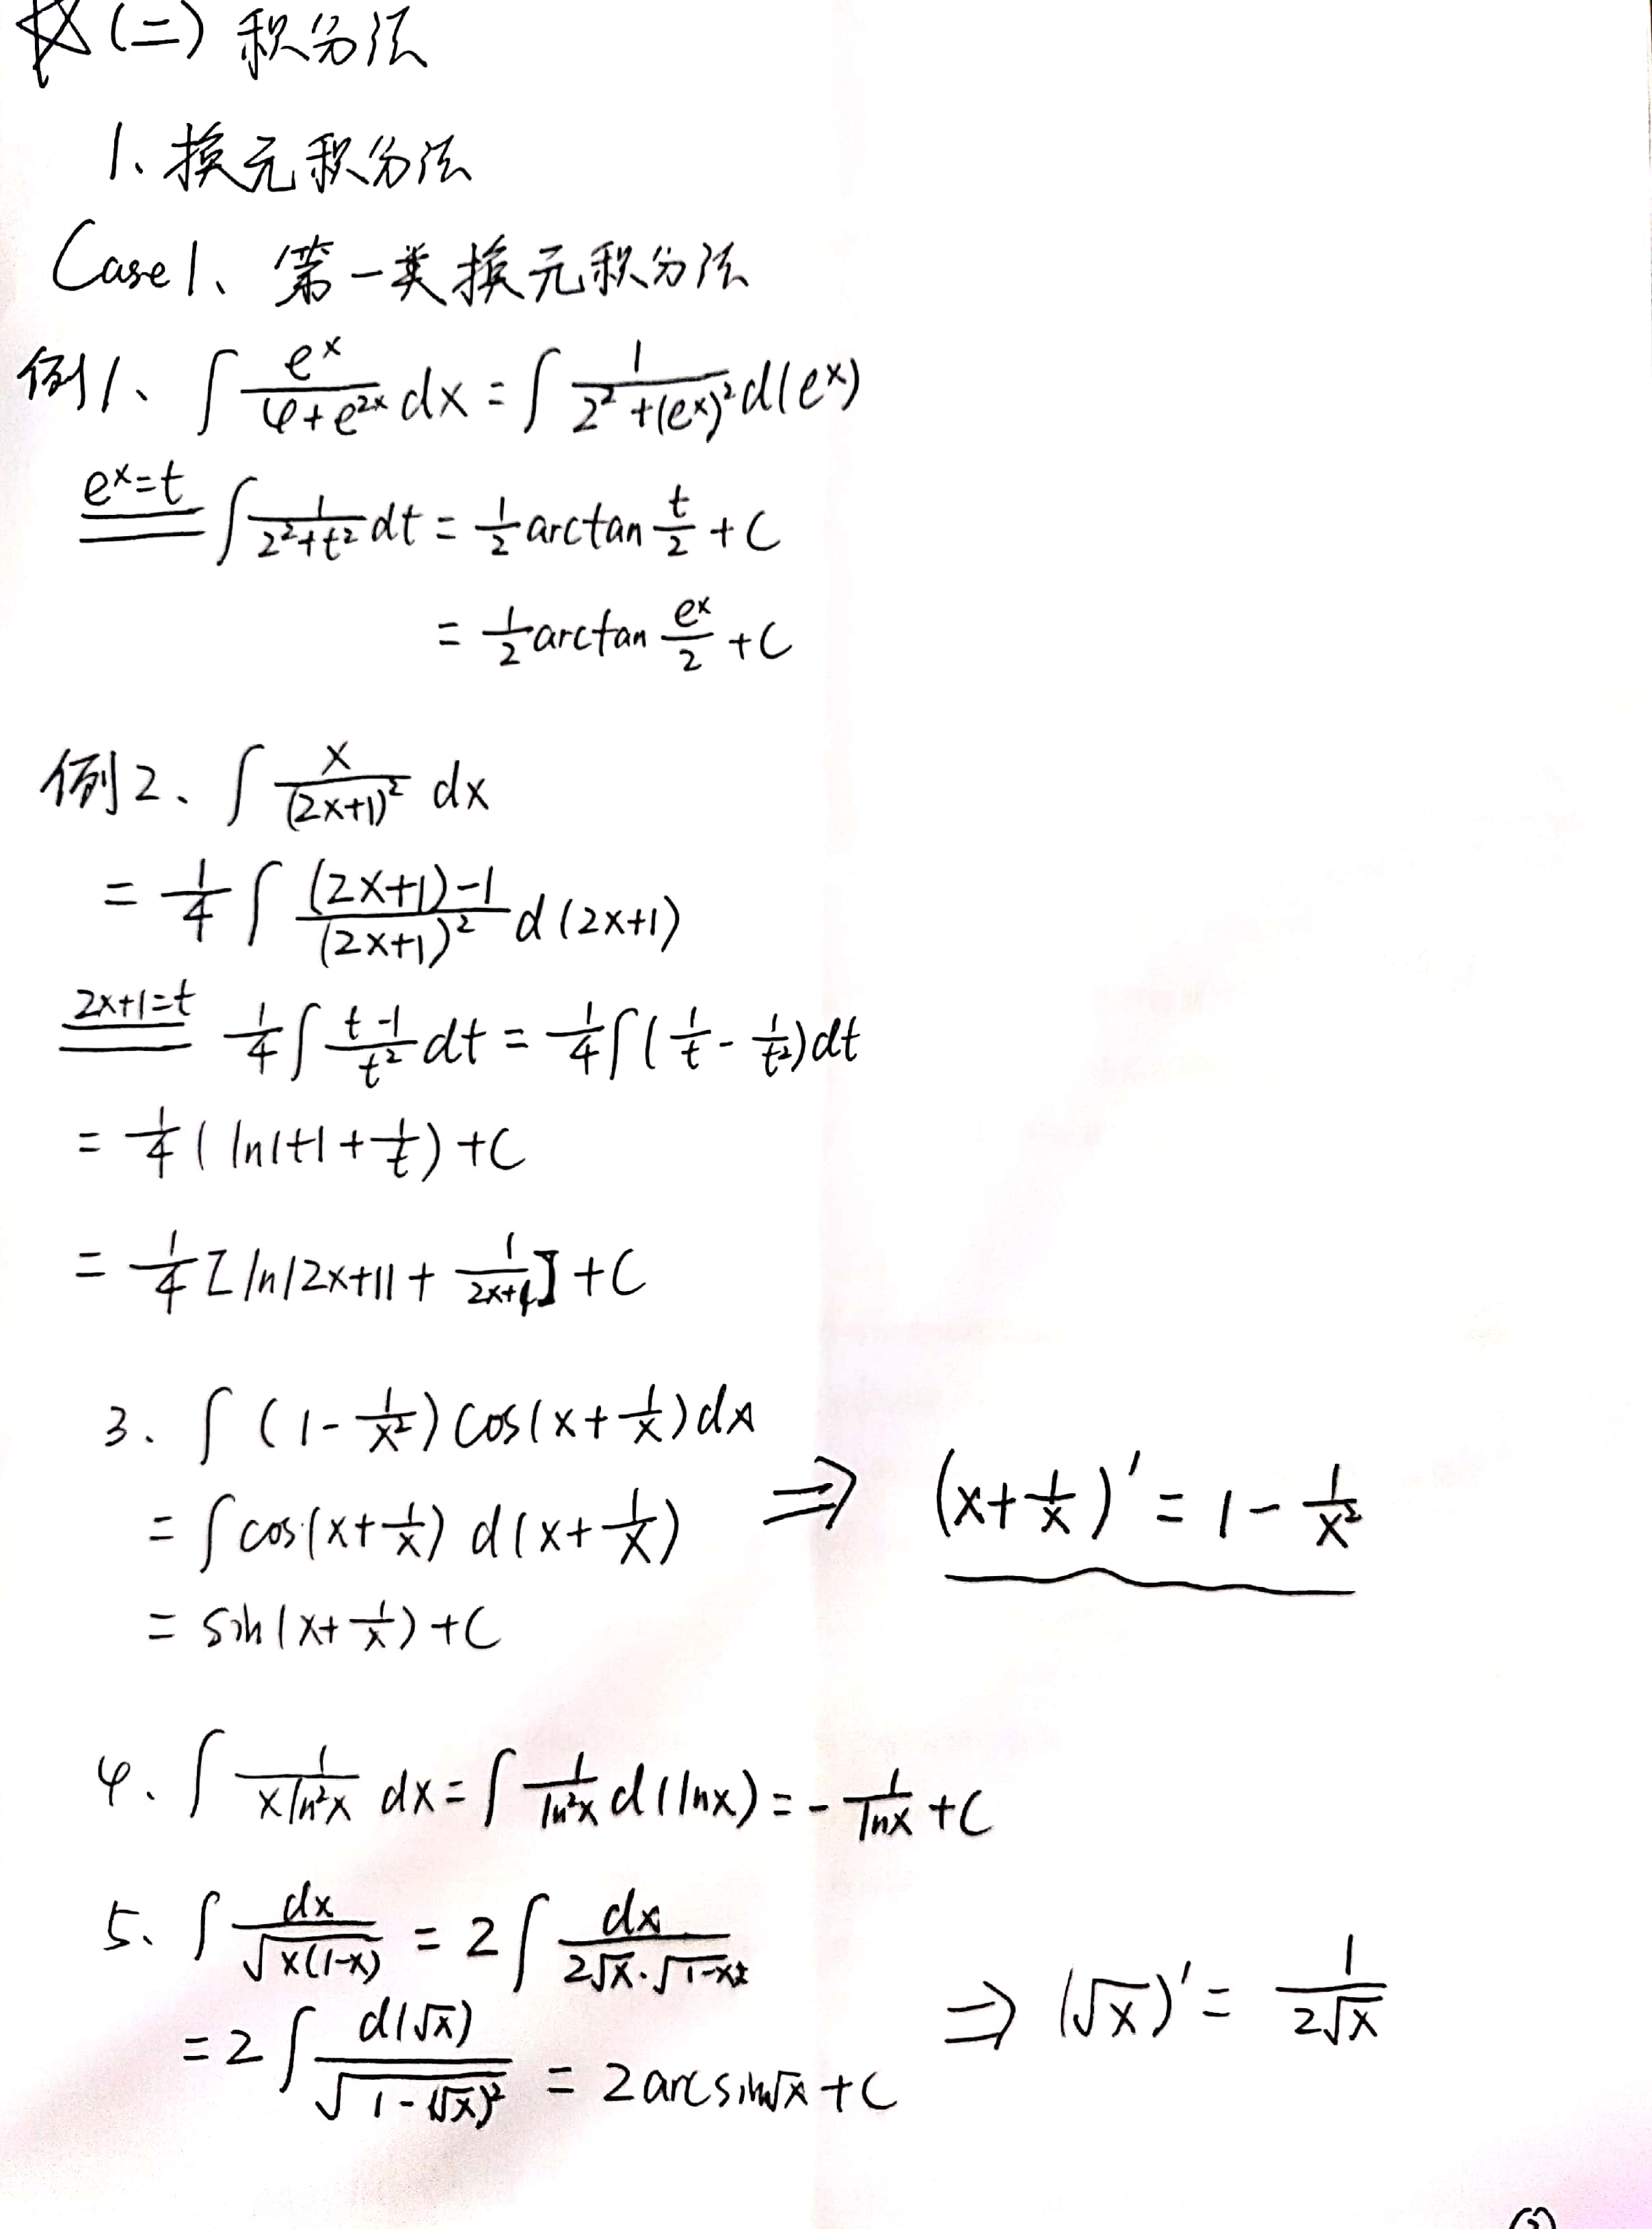 ☆(二) 积分法
1、换元积分法
Case 1、第一类换元积分法
例1、∫ e^x/(4+e^{2x}) dx = ∫ 1/(2²+(e^x)²) d(e^x)
e^x=t ═ ∫ 1/(2²+t²) dt = 1/2 arctan t/2 + C
= 1/2 arctan e^x/2 + C
例2、∫ x/(2x+1)² dx
= 1/4 ∫ ((2x+1)-1)/(2x+1)² d(2x+1)
2x+1=t ═ 1/4 ∫ (t-1)/t² dt = 1/4 ∫ (1/t - 1/t²) dt
= 1/4 ( ln|t| + 1/t ) + C
= 1/4 [ ln|2x+1| + 1/(2x+1) ] + C
3、∫ (1 - 1/x²) cos(x + 1/x) dx
= ∫ cos(x + 1/x) d(x + 1/x) ⇒ (x + 1/x)' = 1 - 1/x²
= sin(x + 1/x) + C
4、∫ 1/(x ln²x) dx = ∫ 1/ln²x d(lnx) = - 1/lnx + C
5、∫ dx/√(x(1-x)) = 2 ∫ dx/(2√x · √(1-x))
= 2 ∫ d(√x)/√(1-(√x)²) = 2 arcsin√x + C ⇒ (√x)' = 1/(2√x)